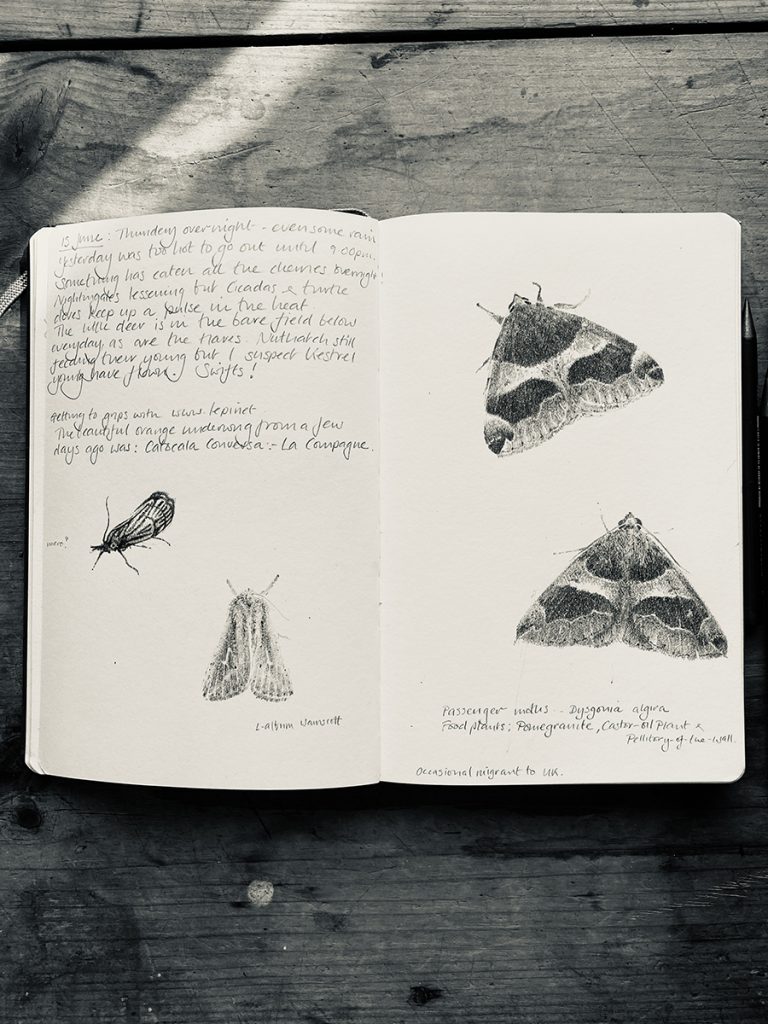 15 June: Thundery overnight - even some rain
yesterday was too hot to go out until 9.00pm.
Something has eaten all the cherries overnight!
Nightingales lessening but Cicadas & turtle
doves keep up a pulse in the heat.
The little deer is in the bare field below
everyday as are the Hares. Nuthatch still
feeding their young but I suspect Kestrel
young have flown. Swifts!
Getting to grips with www.lepinet
The beautiful orange underwing from a few
days ago was: Catocala Conversa:- La Compagne.
micro?
L-album wainscott
Passenger moths - Dysgonia algira
Food plants; Pomegranite, Castor-oil Plant &
Pellitory-of-the-Wall.
Occasional migrant to UK.